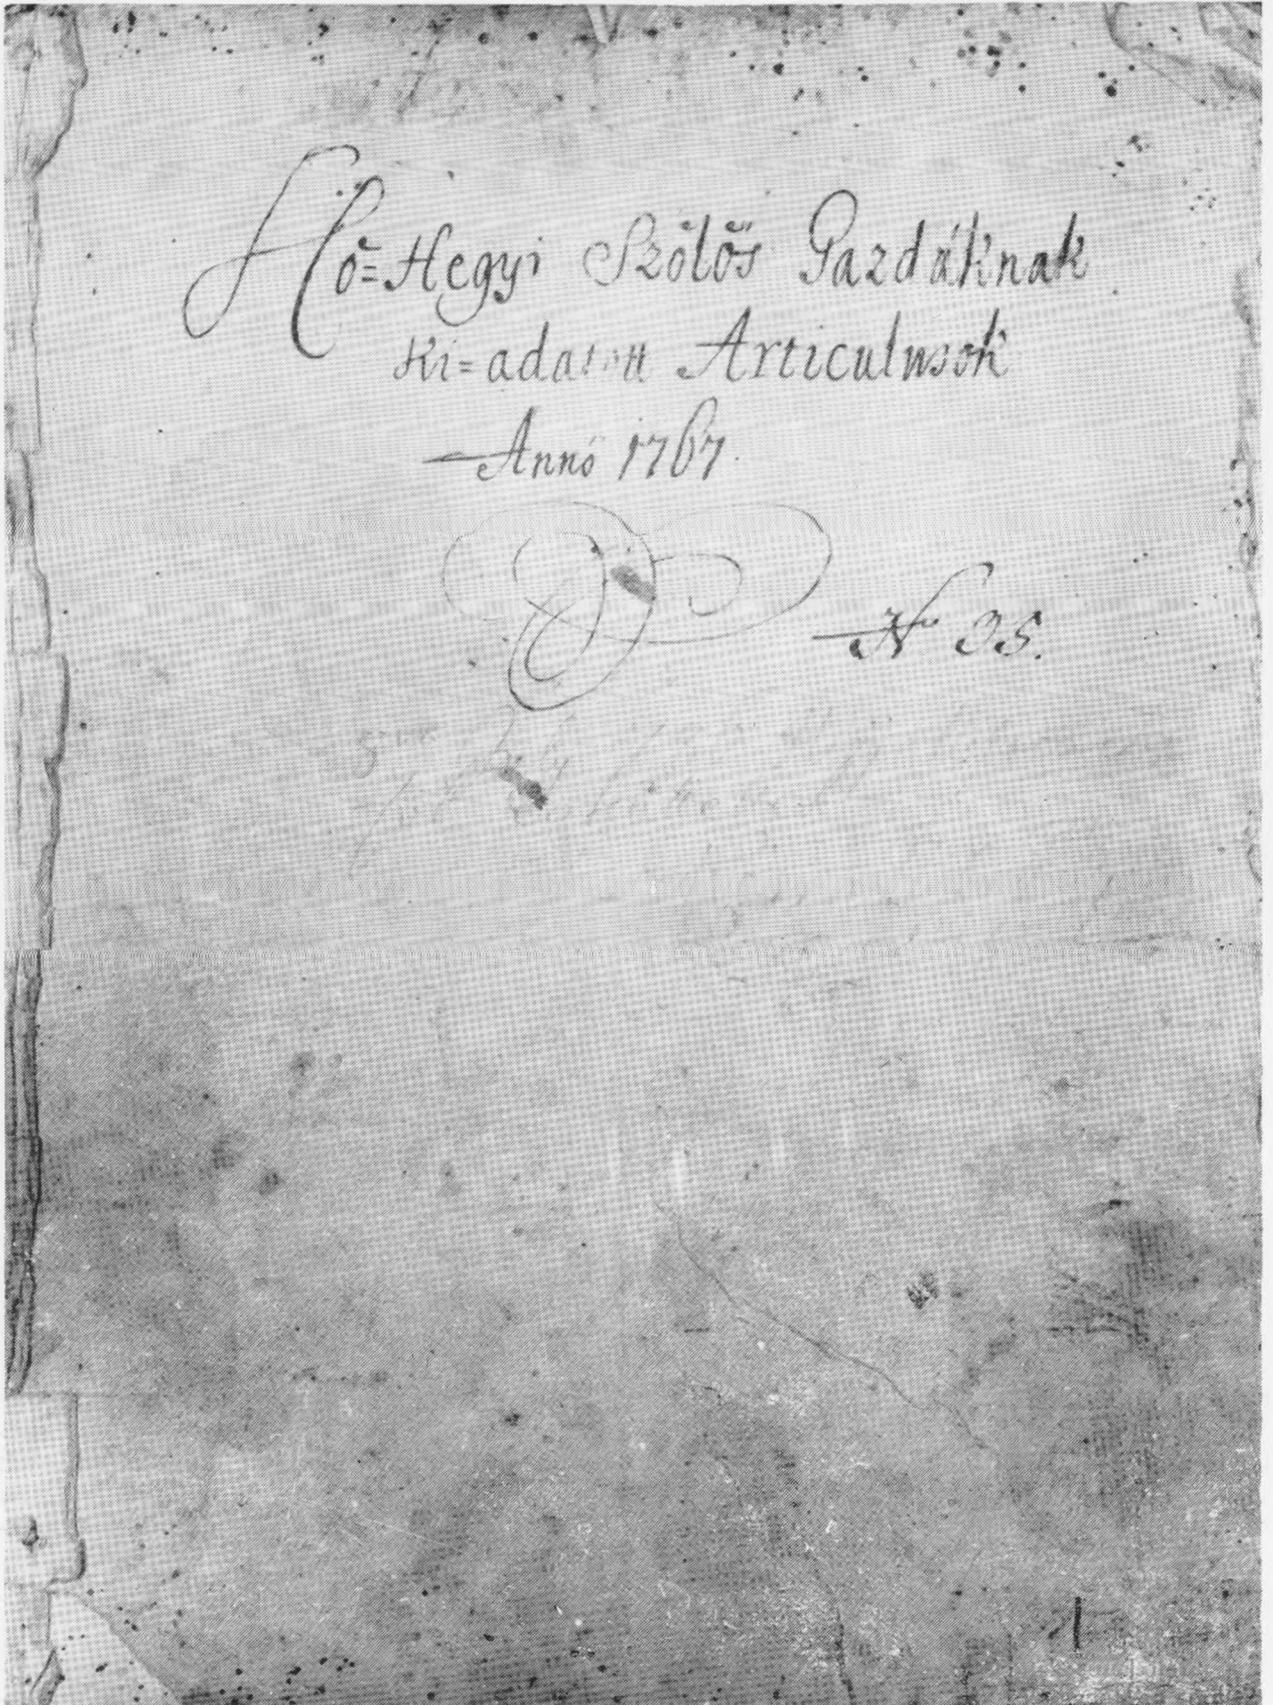 Hő=Hegyi Szőlős Gazdáknak
Ki=adatott Articulusok
Annő 1767.
Nro 35.